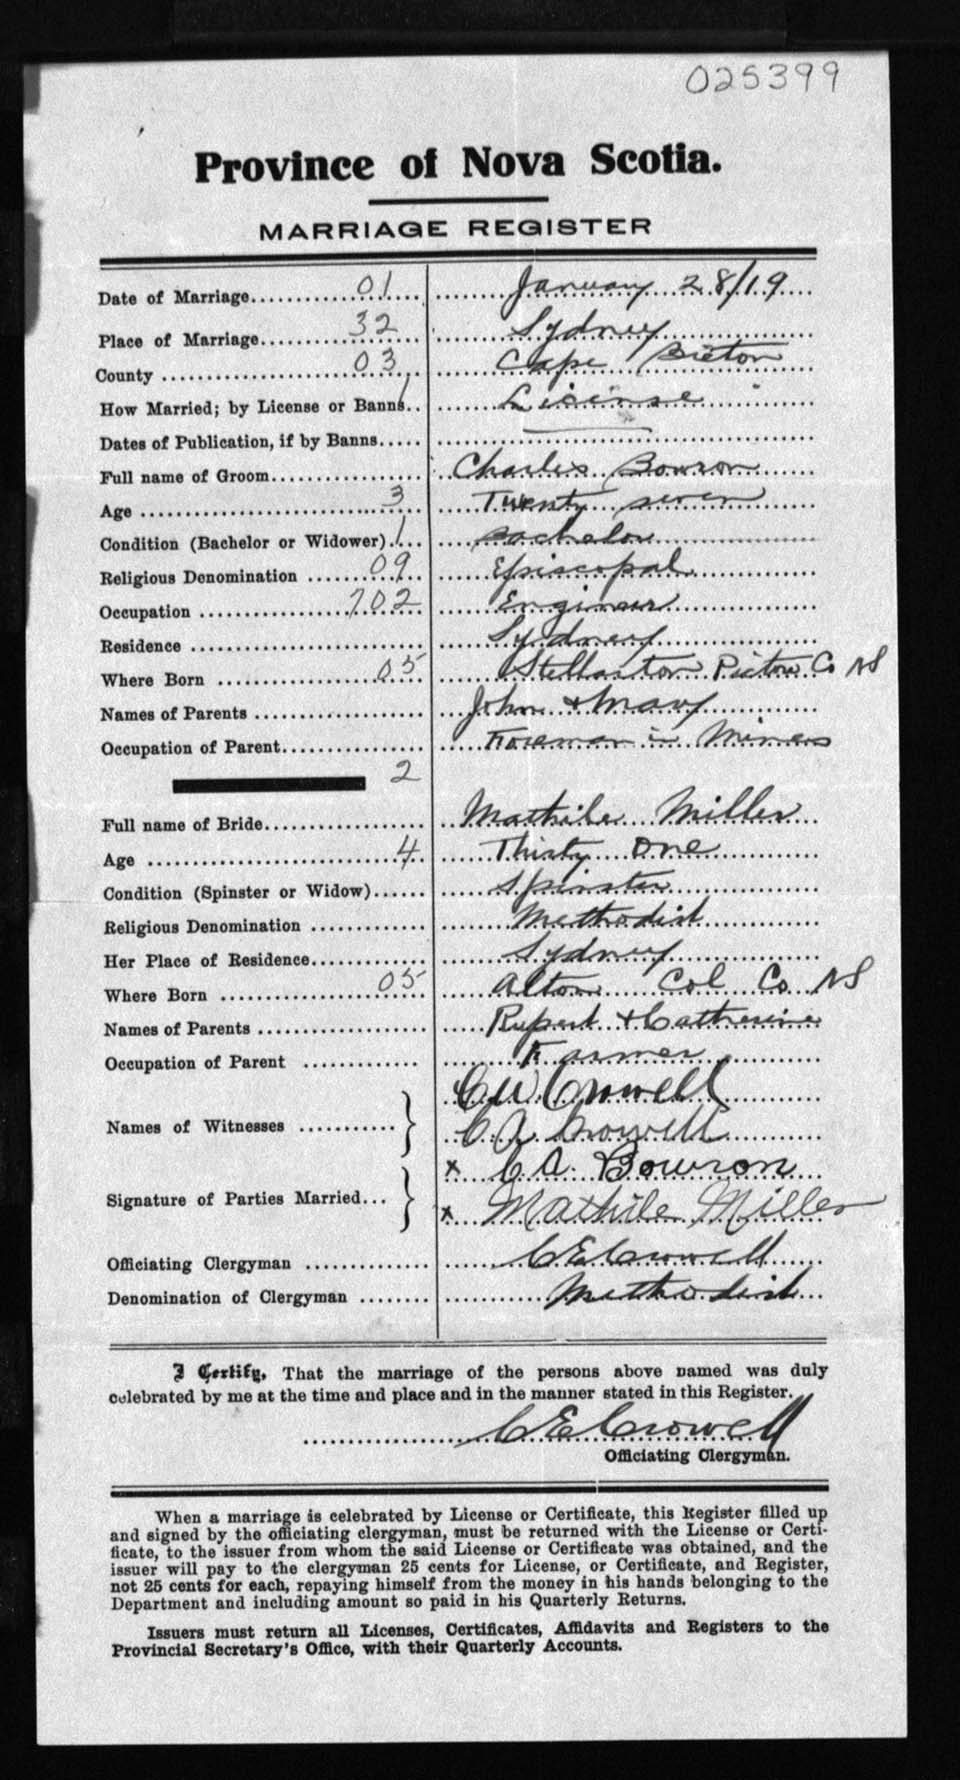 025399
Province of Nova Scotia.
MARRIAGE REGISTER
Date of Marriage 01 January 28/19
Place of Marriage 32 Sydney
County 03 Cape Breton
How Married; by License or Banns 1 License
Dates of Publication, if by Banns
Full name of Groom Charles Bowron
Age 3 Twenty seven
Condition (Bachelor or Widower) 1 Bachelor
Religious Denomination 09 Episcopal
Occupation 702 Engineer
Residence Sydney
Where Born 05 Stellarton Pictou Co NS
Names of Parents John & Mary
Occupation of Parent Foreman in Mines
2
Full name of Bride Mathile Miller
Age 4 Thirty One
Condition (Spinster or Widow) Spinster
Religious Denomination Methodist
Her Place of Residence Sydney
Where Born 05 Alton Col Co NS
Names of Parents Rupert & Catherine
Occupation of Parent Farmer
Names of Witnesses C W Crowell
C A Crowell
Signature of Parties Married x C A Bowron
x Mathile Miller
Officiating Clergyman C E Crowell
Denomination of Clergyman Methodist
I Certify, That the marriage of the persons above named was duly
celebrated by me at the time and place and in the manner stated in this Register.
C E Crowell
Officiating Clergyman.
When a marriage is celebrated by License or Certificate, this Register filled up
and signed by the officiating clergyman, must be returned with the License or Certi-
ficate, to the issuer from whom the said License or Certificate was obtained, and the
issuer will pay to the clergyman 25 cents for License, or Certificate, and Register,
not 25 cents for each, repaying himself from the money in his hands belonging to the
Department and including amount so paid in his Quarterly Returns.
Issuers must return all Licenses, Certificates, Affidavits and Registers to the
Provincial Secretary's Office, with their Quarterly Accounts.